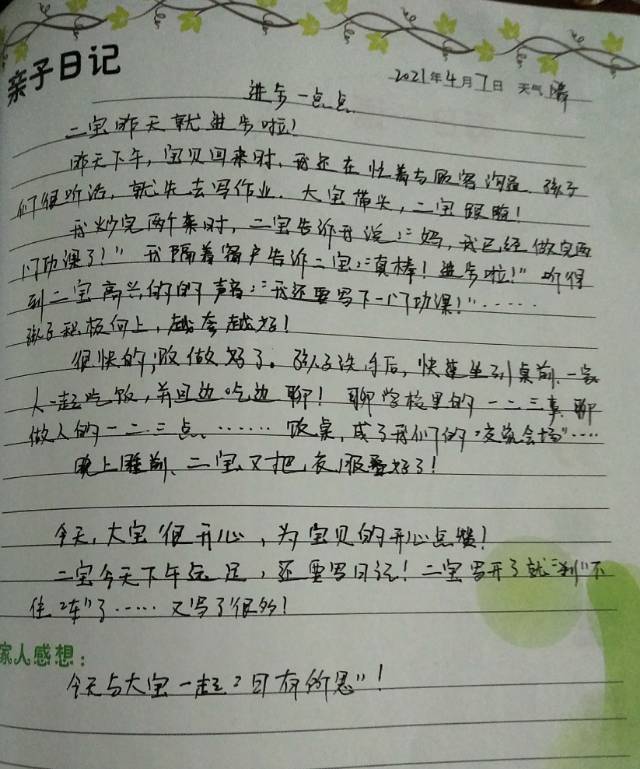 亲子日记
2021年4月7日 天气 晴
进步一点点
二宝昨天就进步啦！
昨天下午，宝贝回来时，我还在忙着与顾客沟通，孩子
们很听话，就先去写作业，大宝带头，二宝跟随！
我炒完两个菜时，二宝告诉我说："妈，我已经做完两
门功课了！"我隔着窗户告诉二宝："真棒！进步啦！"听得
到二宝高兴的的声音："我还要写下一门功课！"……
孩子积极向上，越李越好！
很快的，饭做好了。孩子洗手后，快落坐到桌前，一家
人一起吃饭，并且边吃边聊！聊学校里的一二三事，聊
做人的一二三点，……饭桌，成了我们的"交流会场"……
晚上睡前，二宝又把衣服叠好了！
今天，大宝很开心，为宝贝的开心点赞！
二宝今天下午远足，还要写日记！二宝写开了就"刹"不
住"车"了……又写了很多！
家人感想：
今天与大宝一起"日有所思"！